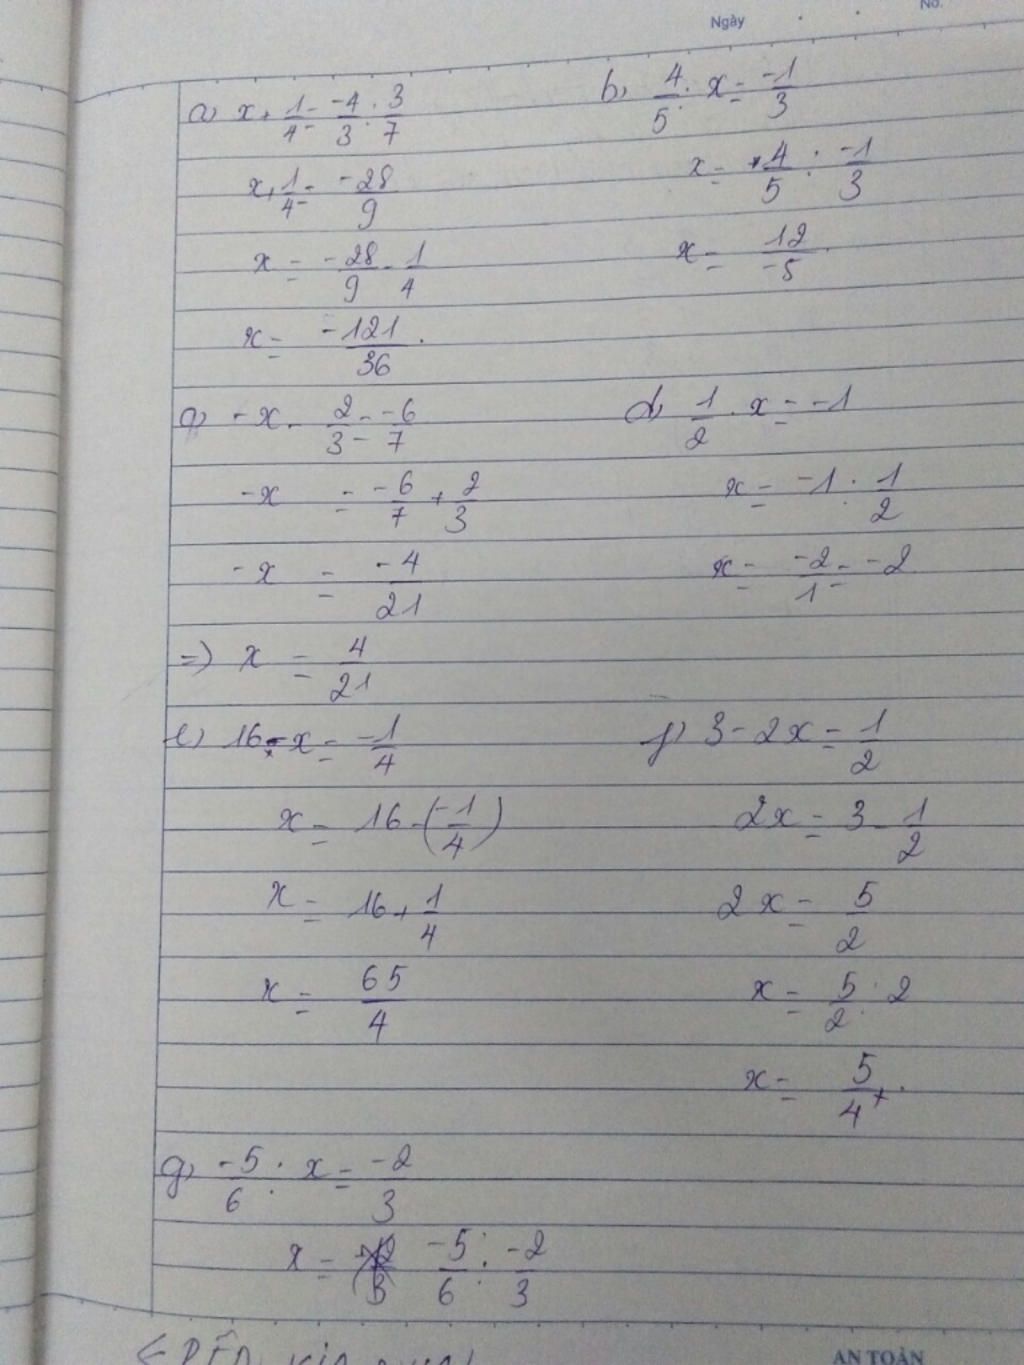 Ngày No.
a) x + 1/4 = -4/3 : 3/7
x + 1/4 = -28/9
x = -28/9 - 1/4
x = -121/36.
b) 4/5 : x = -1/3
x = 4/5 : -1/3
x = 12/-5.
c) -x - 2/3 = -6/7
-x = -6/7 + 2/3
-x = -4/21
=> x = 4/21
d) 1/2 . x = -1
x = -1 : 1/2
x = -2/1 = -2
e) 16 - x = -1/4
x = 16 - (-1/4)
x = 16 + 1/4
x = 65/4
f) 3 - 2x = 1/2
2x = 3 - 1/2
2x = 5/2
x = 5/2 : 2
x = 5/4.
g) -5/6 : x = -2/3
x = -5/6 : -2/3
AN TOÀN